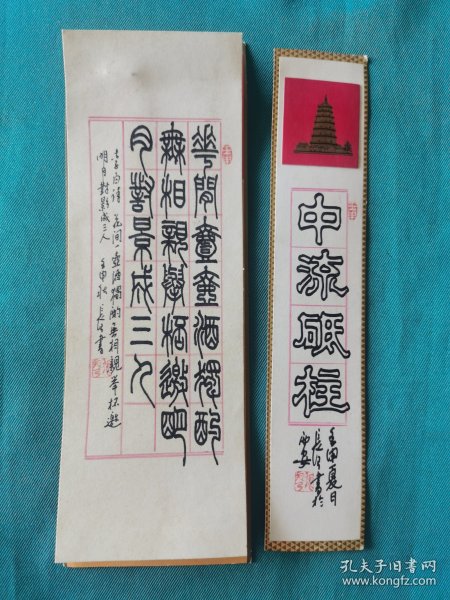 華間壹壺酒獨酌
無相親舉杯邀明
月對景成三人
李白诗 花间一壶酒獨酌無相親举杯邀
明月對影成三人 壬申秋 長江書
中流砥柱
壬申夏日
長江書於
西安
孔夫子旧书网
www.kongfz.com